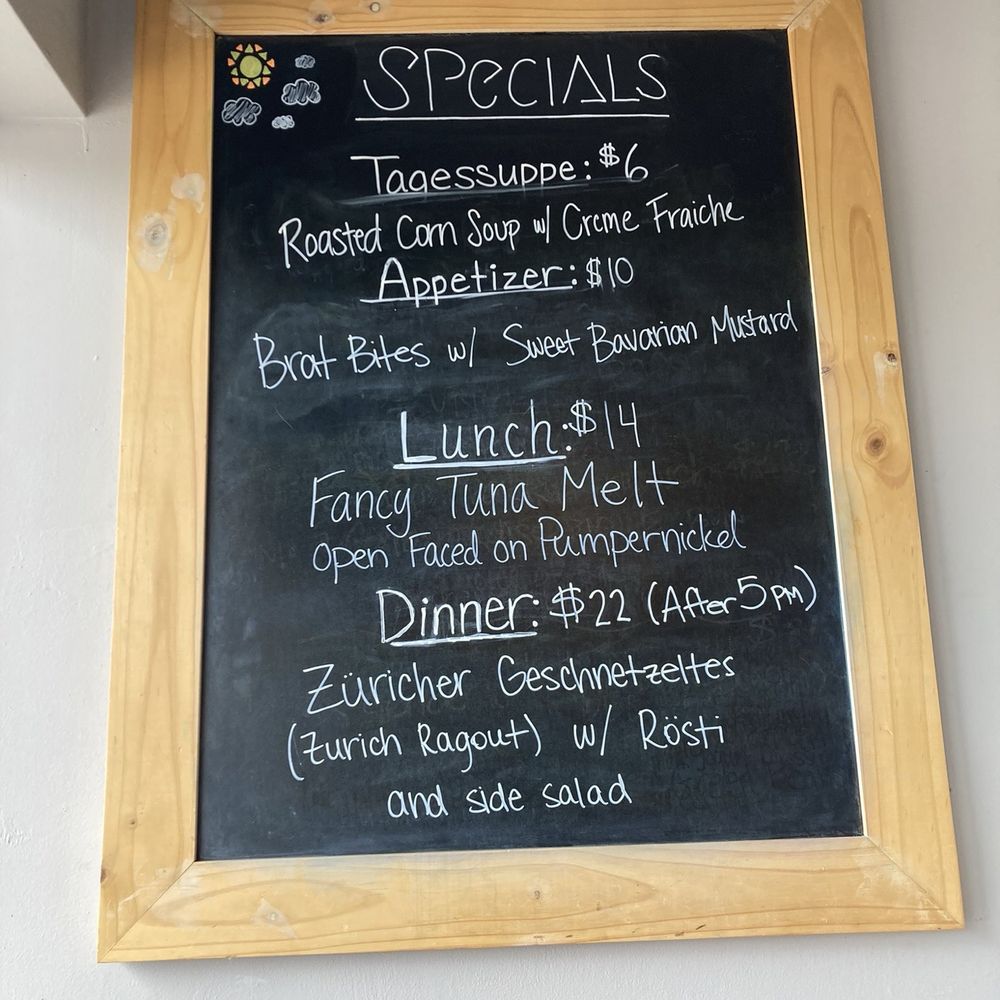 SPECIALS
Tagessuppe: $6
Roasted Corn Soup w/ Creme Fraiche
Appetizer: $10
Brat Bites w/ Sweet Bavarian Mustard
Lunch: $14
Fancy Tuna Melt
Open Faced on Pumpernickel
Dinner: $22 (After 5pm)
Züricher Geschnetzeltes
(Zurich Ragout) w/ Rösti
and side salad